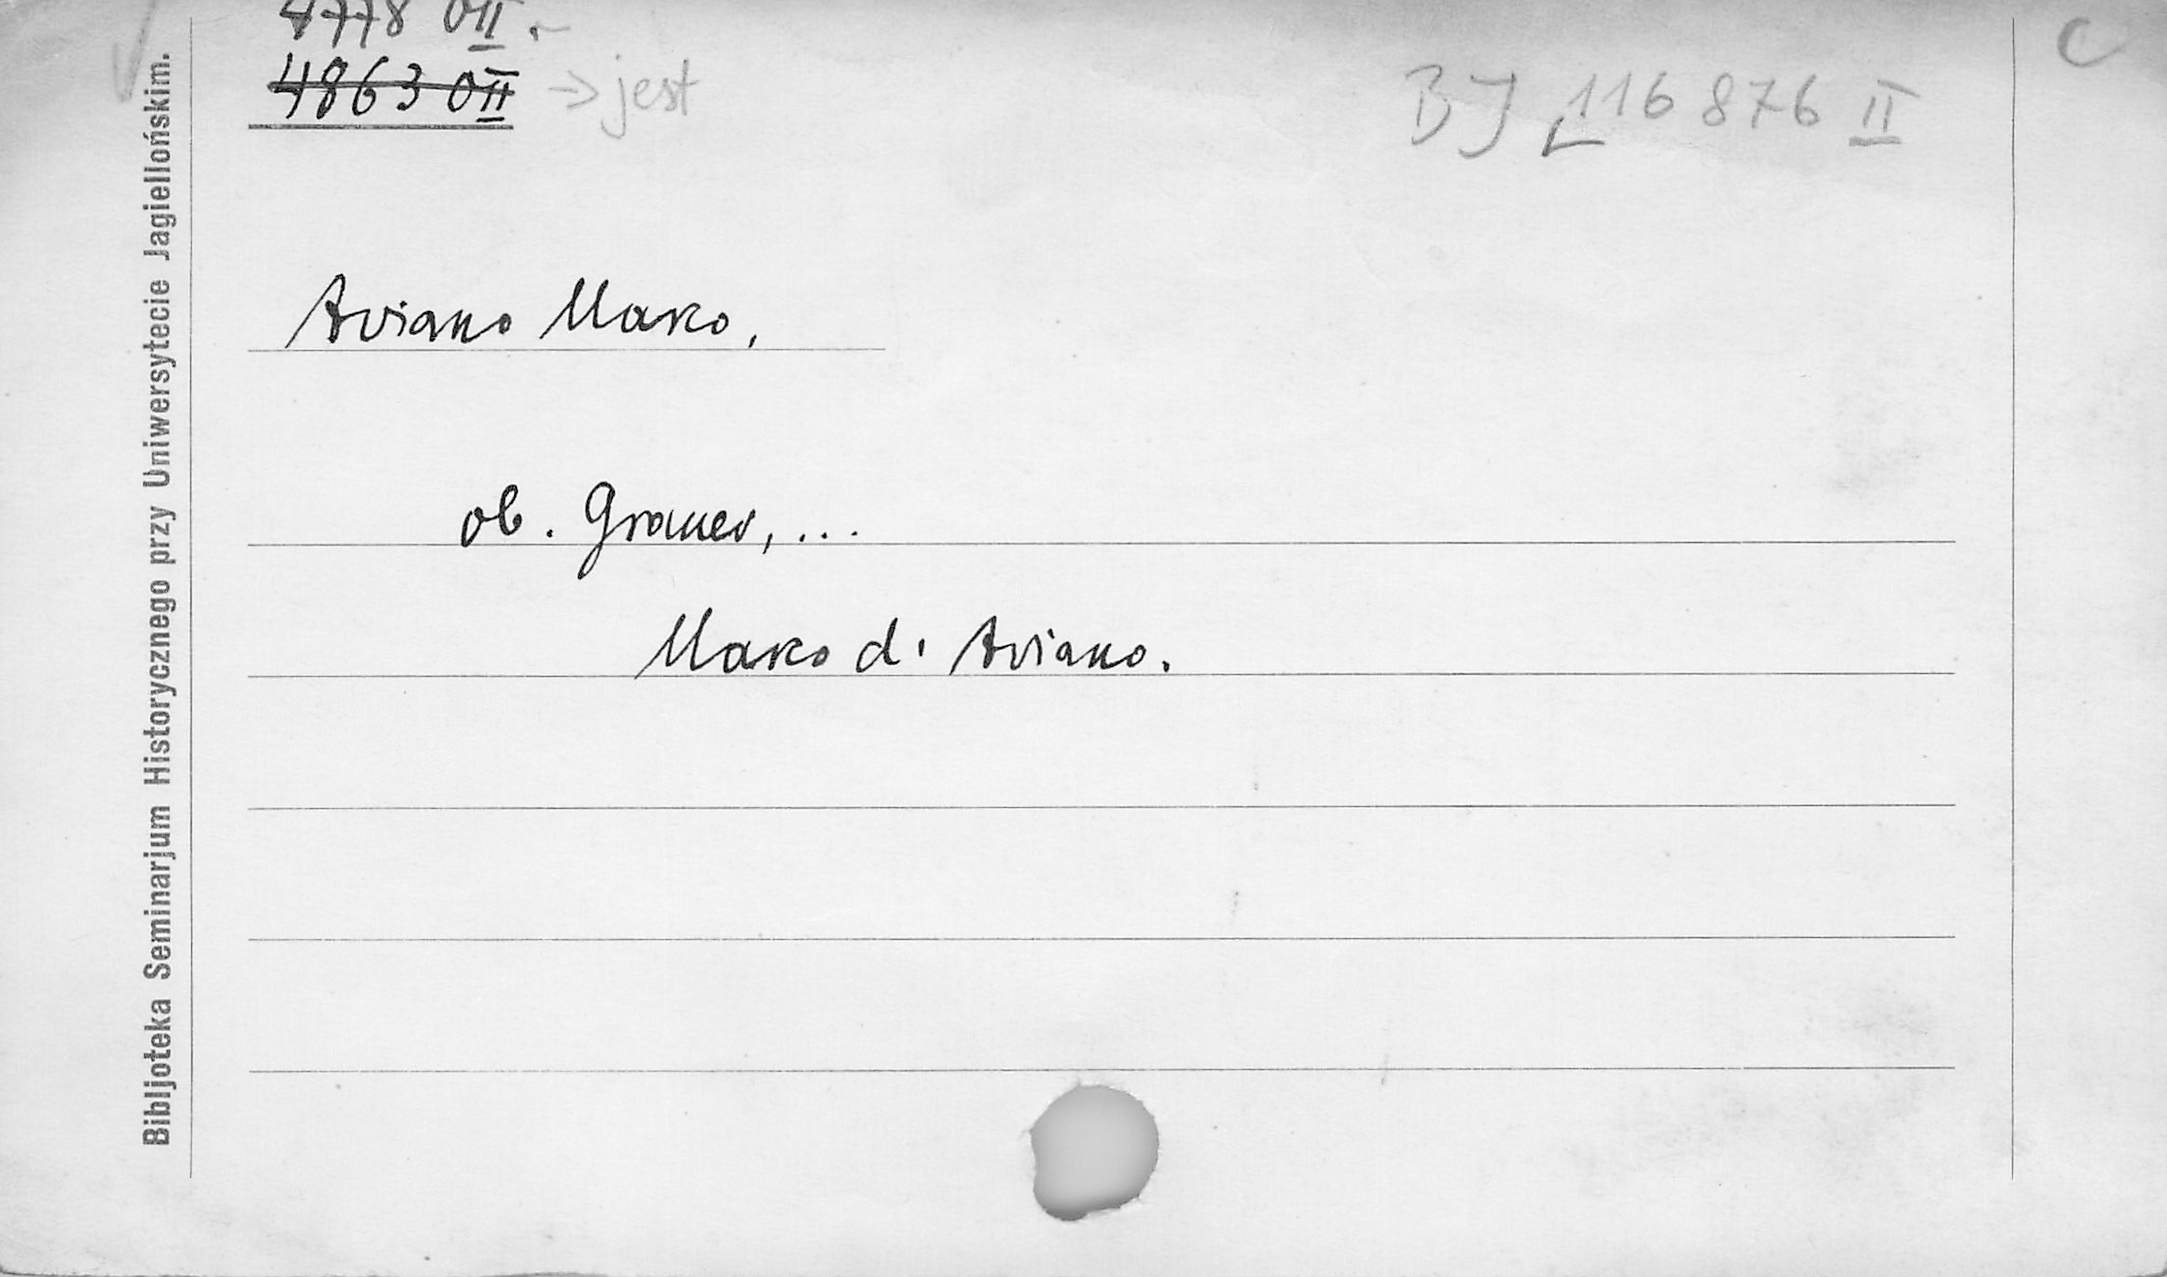 4778 OII.-
4863 OII → jest
BJ 116 876 II
C
Aviano Marco,
ob. Grauer, ...
Marco d' Aviano.
Bibljoteka Seminarjum Historycznego przy Uniwersytecie Jagiellońskim.